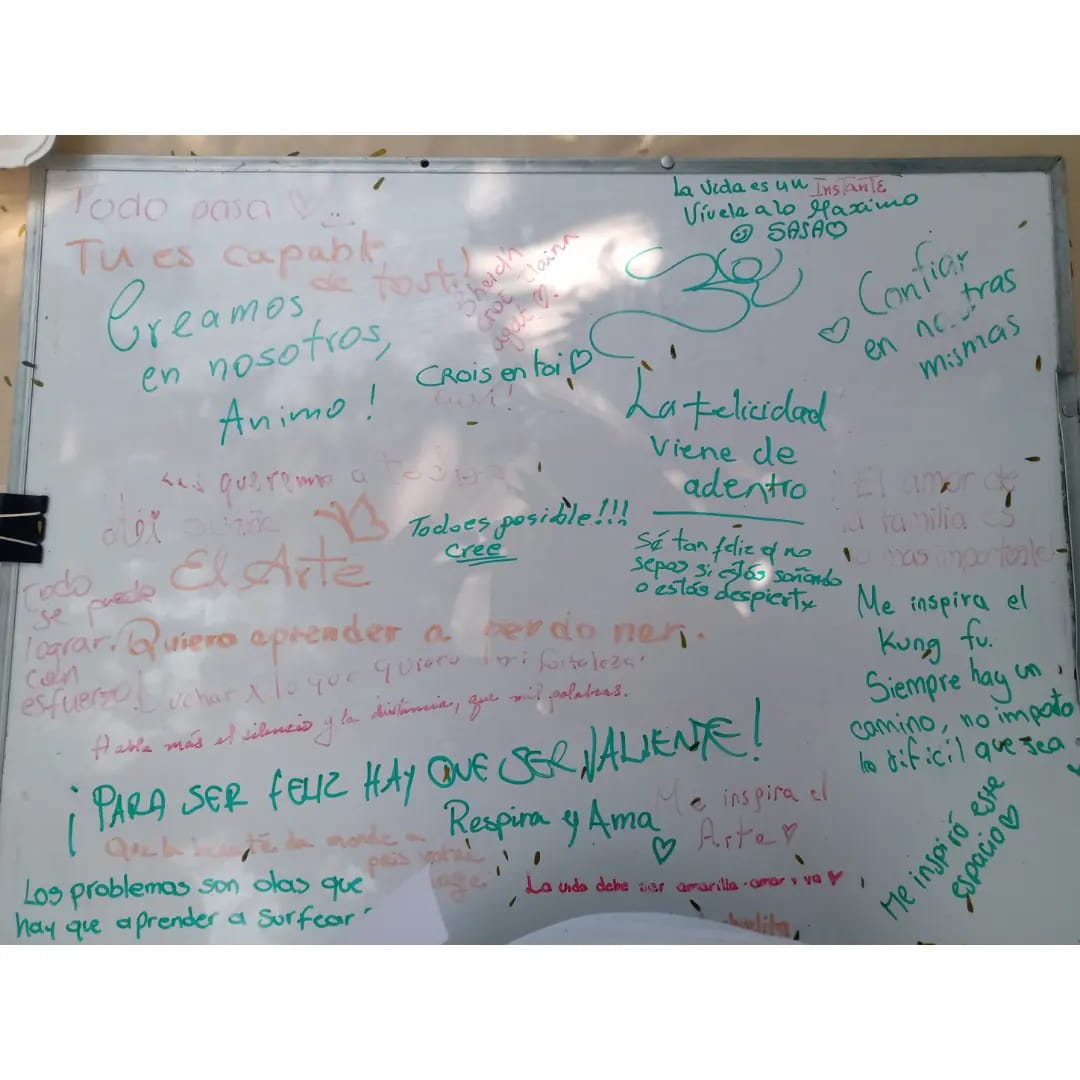 Todo pasa ♡
Tu es capable
de tout!
Creamos
en nosotros,
Animo!
La vida es un INSTANTE
Vívela a lo Maximo
SASA♡
Confiar
en nosotras
mismas
CROIS en toi ♡
La felicidad
viene de
adentro
Sé tan feliz q no
sepas si estás soñando
o estás despiert
queremos a
Todo es posible!!!
cree
El Arte
El amor de
la familia es
lo mas importante
Todo
se puede
lograr.
con
esfuerzo!
Quiero aprender a perdonar.
Luchar x lo que quiero mi fortaleza.
Habla más el silencio y la distancia, que mil palabras.
Me inspira el
Kung fu.
Siempre hay un
camino, no impota
lo dificil que sea
¡PARA SER FELIZ HAY QUE SER VALIENTE!
Respira y Ama
♡
Me inspira el
Arte ♡
Me inspiró este
espacio ♡
Que la
La vida debe ser amarilla-amar y ya ♡
Los problemas son olas que
hay que aprender a surfear